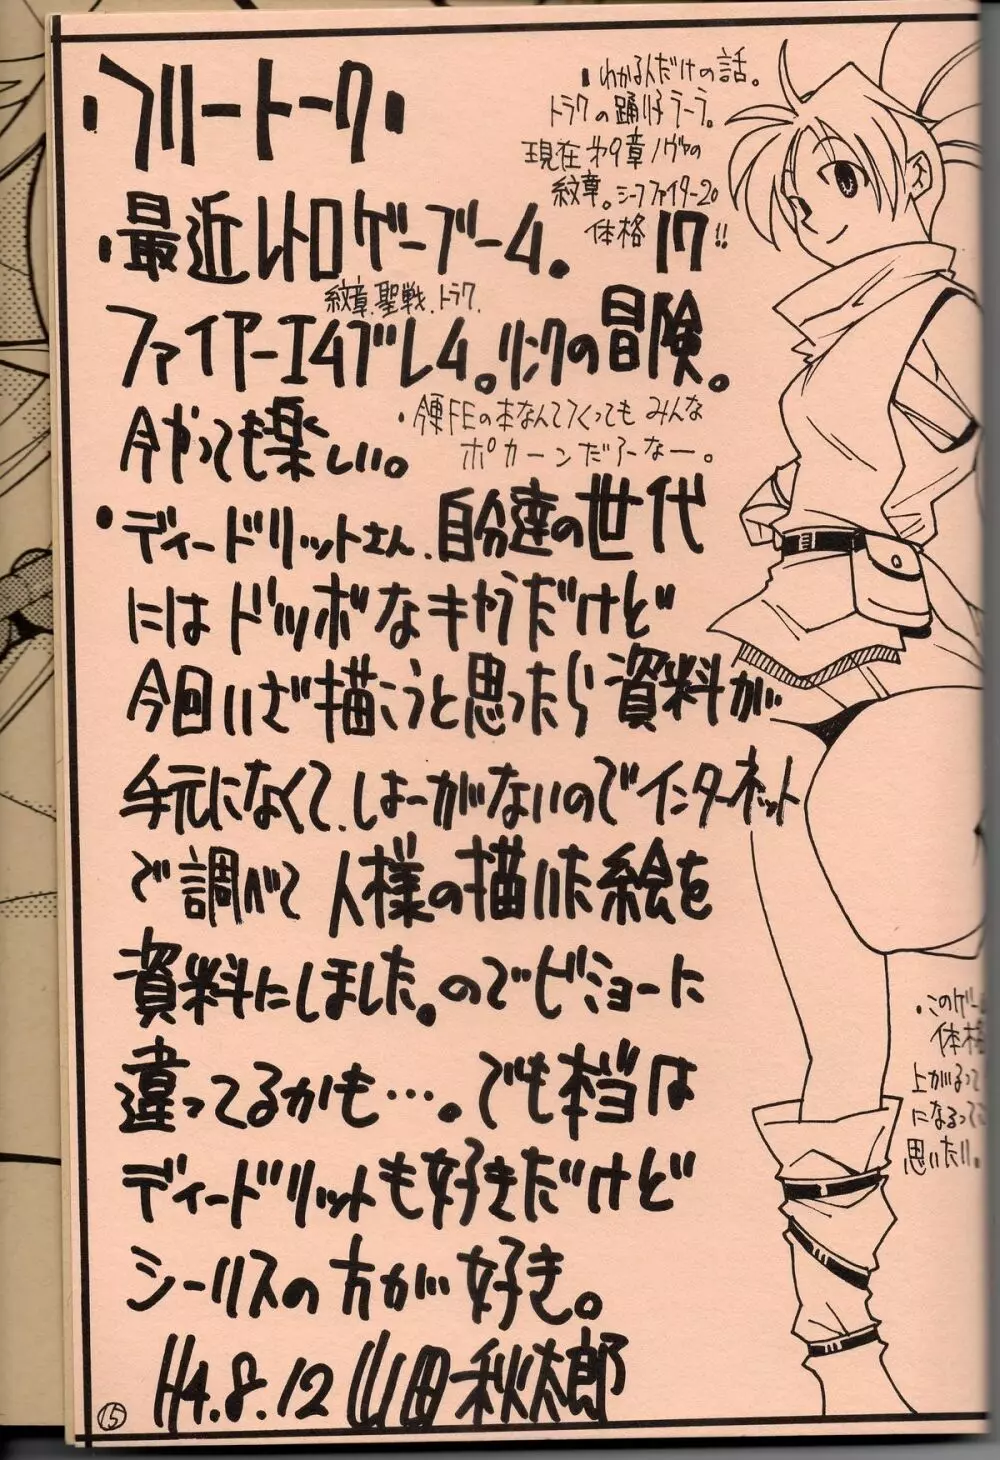 ・フリートーク・
・わかる人だけの話。
トラクの踊り子ラーラ。
現在 第9章ノヴァの
紋章。シーフファイター20
体格 17!!
・最近レトロゲーブーム。
紋章.聖戦.トラク.
ファイアーエムブレム。リンクの冒険。
今やっても楽しい。
・今更FEの本なんてつくっても みんな
ポカーンだろーなー。
・ディードリットさん、自分達の世代
にはドツボなキャラだけど
今回いざ描こうと思ったら資料が
手元になくて、しょーがないのでインターネット
で調べて人様の描いた絵を
資料にしました。のでビミョーに
違ってるかも…。でも本当は
ディードリットも好きだけど
シーリスの方が好き。
H4.8.12 山田秋太郎
・このゲー
体格
上がるって
になるって
思いたい。
15